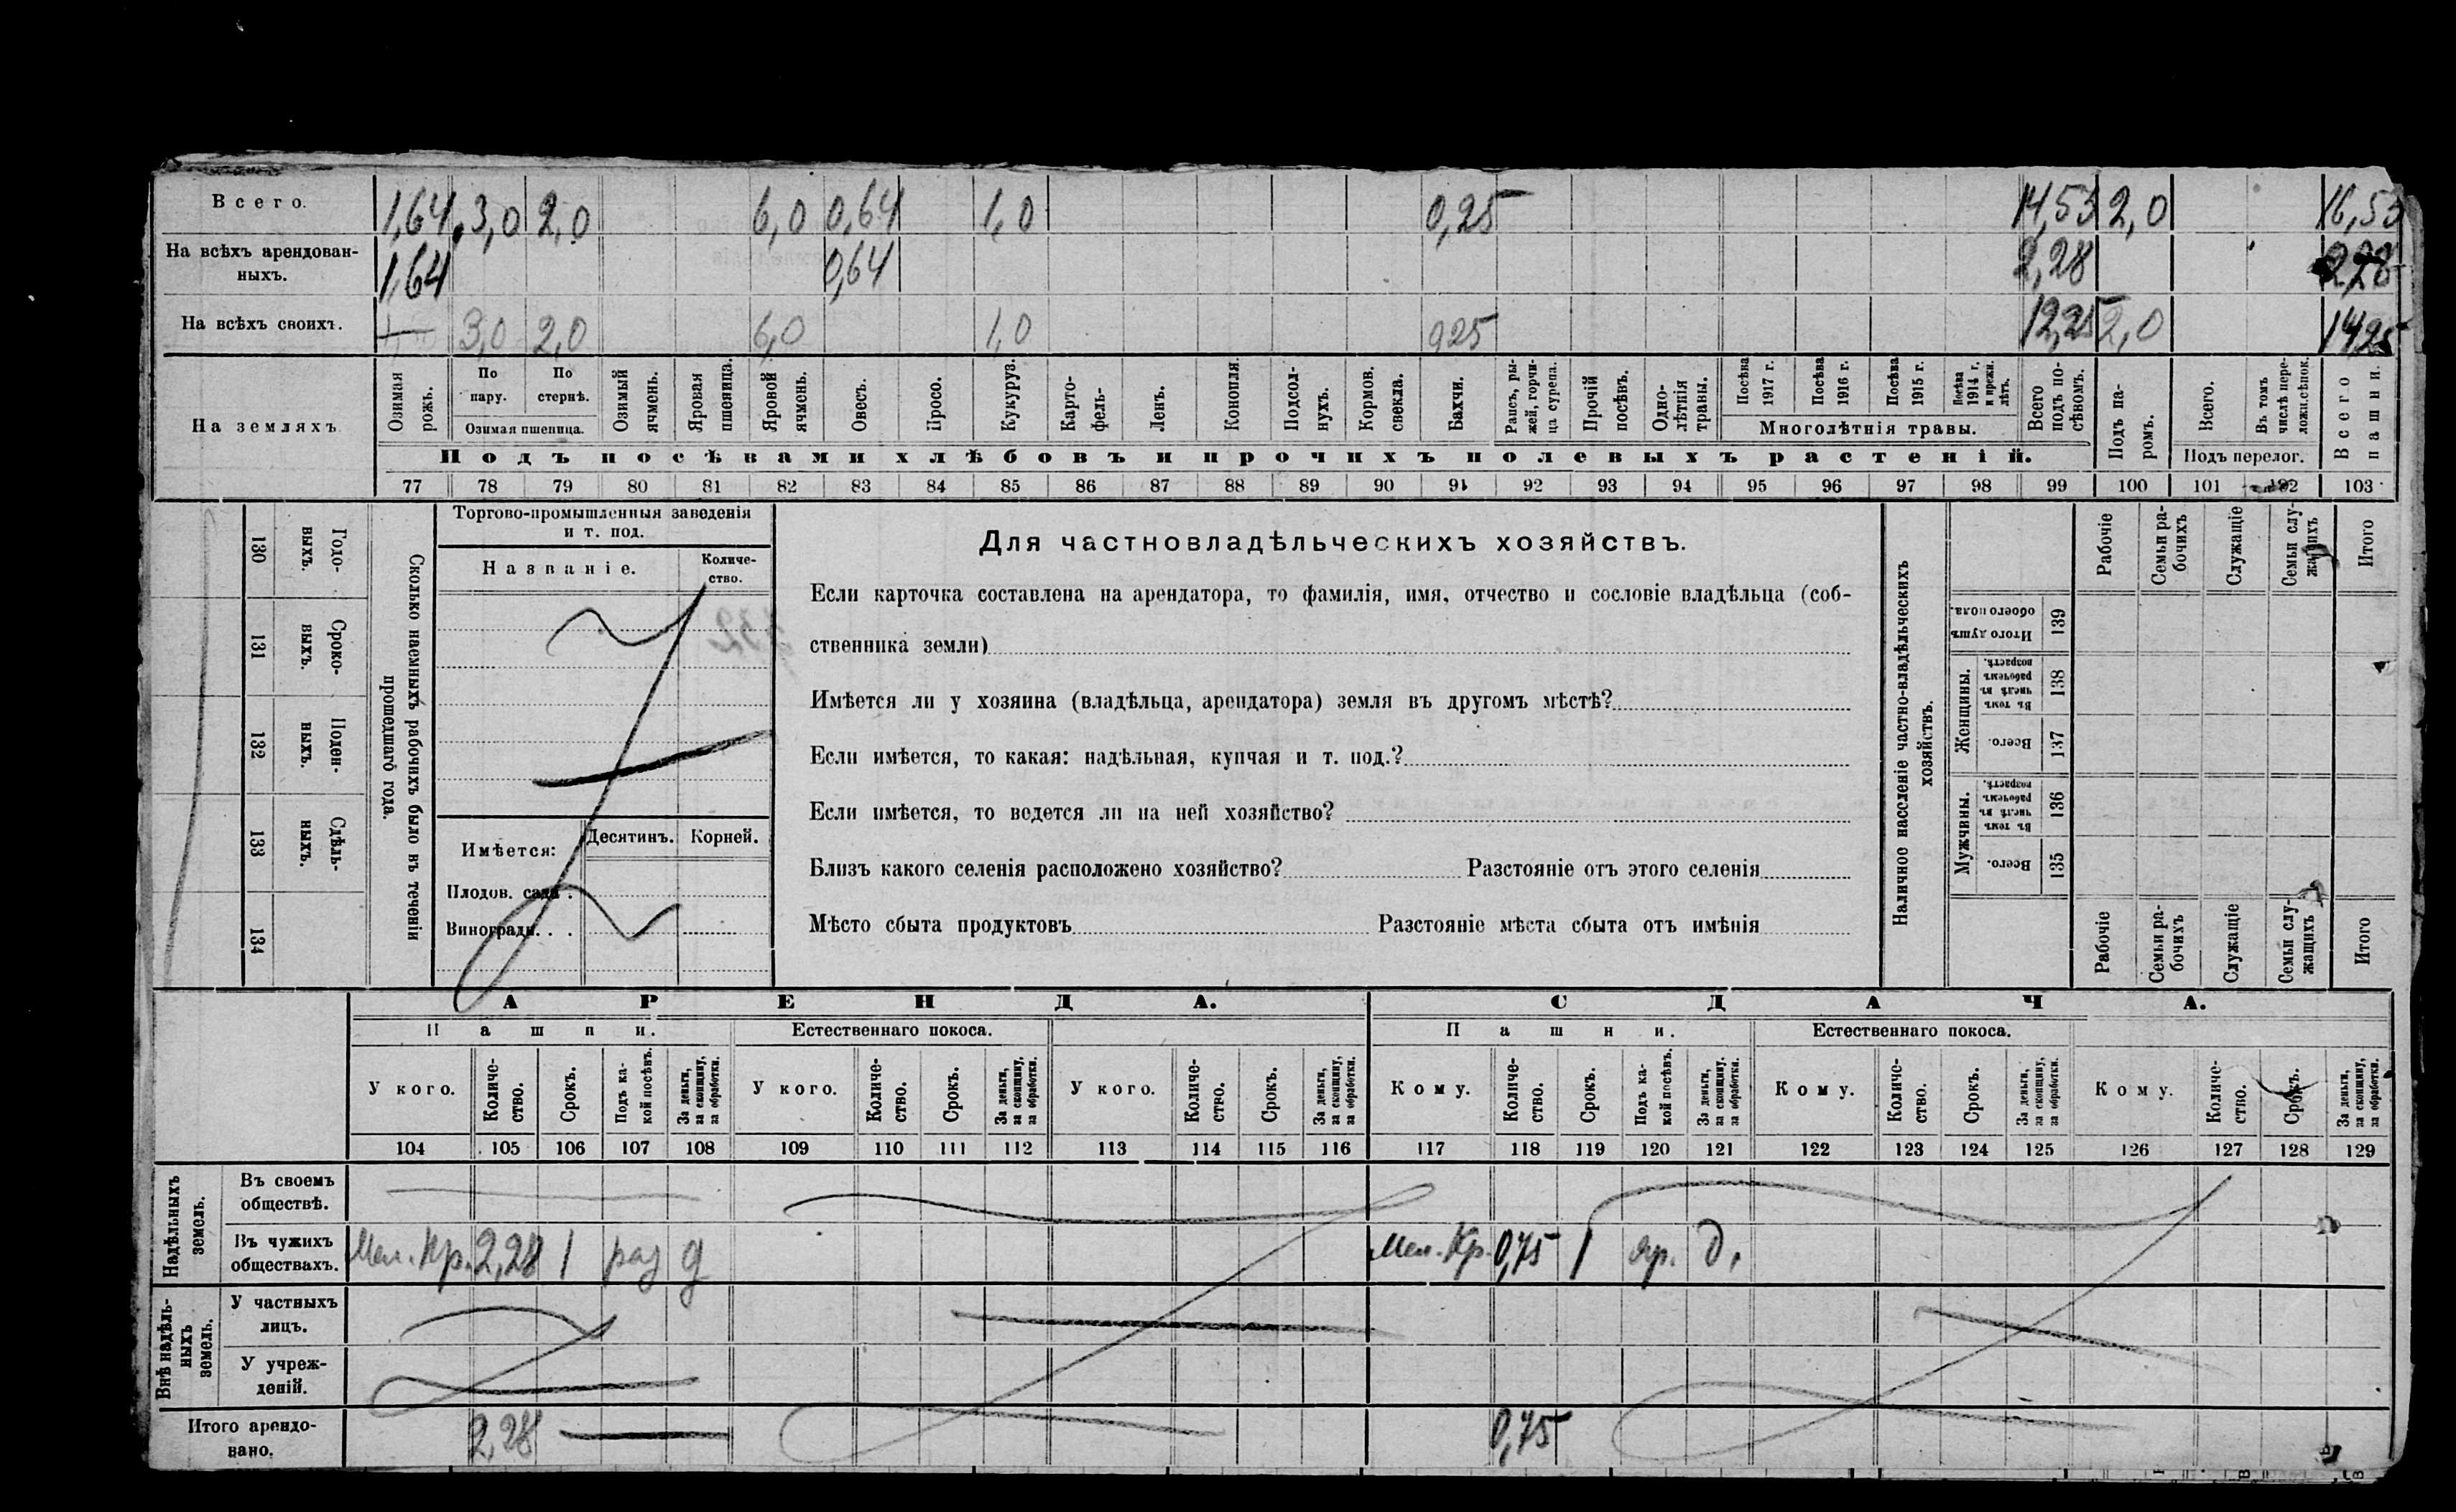 Всего. 1,64 3,0 2,0 6,0 0,64 1,0 0,25 14,53 2,0 16,53
На всѣхъ арендован-
ныхъ. 1,64 0,64 2,28 2,28
На всѣхъ своихъ. 3,0 2,0 6,0 1,0 0,25 12,25 2,0 14,25
На земляхъ
Озимая рожь.
По пару.
По стернѣ.
Озимая пшеница.
Озимый ячмень.
Яровая пшеница.
Яровой ячмень.
Овесъ.
Просо.
Кукуруз.
Карто-
фель-
Ленъ.
Конопля.
Подсол-
нухъ.
Кормов. свекла.
Бахчи.
Рапсъ, ры-
жей, горчи-
ца сурепа.
Прочій посѣвъ.
Одно-
лѣтнія травы.
Посѣва 1917 г.
Посѣва 1916 г.
Посѣва 1915 г.
Посѣва 1914 г. и прежн. лѣтъ.
Многолѣтнія травы.
Всего подъ по-
сѣвомъ.
Подъ па-
ромъ.
Всего.
Въ томъ числѣ пере-
Подъ перелог.
Всего пашни.
Подъ посѣвами хлѣбовъ и прочихъ полевыхъ растеній.
77 78 79 80 81 82 83 84 85 86 87 88 89 90 91 92 93 94 95 96 97 98 99 100 101 102 103
130 Годо-
выхъ.
131 Сроко-
выхъ.
132 Поден-
ныхъ.
133 Сдѣль-
ныхъ.
134
Сколько наемныхъ рабочихъ было въ теченіи
прошедшаго года.
Торгово-промышленныя заведенія
и т. под.
Названіе. Количе-
ство.
Имѣется: Десятинъ. Корней.
Плодов. сада .
Виноградн. . .
Для частновладѣльческихъ хозяйствъ.
Если карточка составлена на арендатора, то фамилія, имя, отчество и сословіе владѣльца (соб-
ственника земли)
Имѣется ли у хозяина (владѣльца, арендатора) земля въ другомъ мѣстѣ?
Если имѣется, то какая: надѣльная, купчая и т. под.?
Если имѣется, то ведется ли на ней хозяйство?
Близъ какого селенія расположено хозяйство? Разстояніе отъ этого селенія
Мѣсто сбыта продуктовъ Разстояніе мѣста сбыта отъ имѣнія
Наличное населеніе частно-владѣльческихъ
хозяйствъ.
Рабочіе
Семьи ра-
бочихъ
Служащіе
Семьи слу-
жащихъ
Итого
Итого душъ обоего пола. 139
Женщины.
Въ томъ числѣ въ рабочемъ возрастѣ. 138
Всего. 137
Мужчины.
Въ томъ числѣ въ рабочемъ возрастѣ. 136
Всего. 135
Рабочіе
Семьи ра-
бочихъ
Служащіе
Семьи слу-
жащихъ
Итого
АРЕНДА. СДАЧА.
Пашни. Естественнаго покоса. Пашни. Естественнаго покоса.
У кого.
Количе-
ство.
Срокъ.
Подъ ка-
кой посѣвъ.
За деньги,
за скопщину,
за обработки.
У кого.
Количе-
ство.
Срокъ.
За деньги,
за скопщину,
за обработки.
У кого.
Количе-
ство.
Срокъ.
За деньги,
за скопщину,
за обработки.
Кому.
Количе-
ство.
Срокъ.
Подъ ка-
кой посѣвъ.
За деньги,
за скопщину,
за обработки.
Кому.
Количе-
ство.
Срокъ.
За деньги,
за скопщину,
за обработки.
Кому.
Количе-
ство.
Срокъ.
За деньги,
за скопщину,
за обработки.
104 105 106 107 108 109 110 111 112 113 114 115 116 117 118 119 120 121 122 123 124 125 126 127 128 129
Надѣльныхъ
земель.
Въ своемъ
обществѣ.
Въ чужихъ
обществахъ. Мал. Кр. 2,28 1 раз д Мал. Кр. 0,75 1 яр. д.
Внѣ надѣль-
ныхъ
земель.
У частныхъ
лицъ.
У учреж-
деній.
Итого арендо-
вано. 2,28 0,75